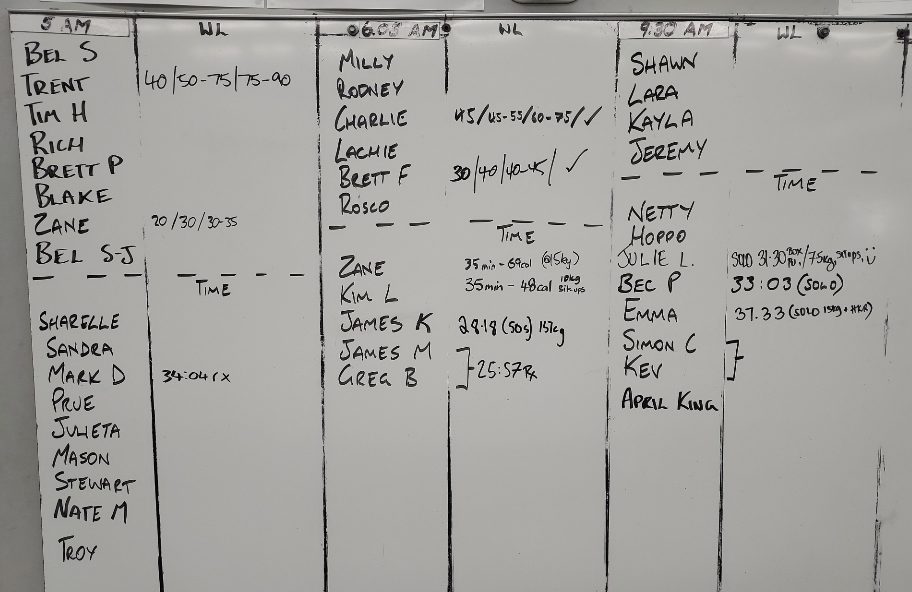 5 AM WL
BEL S
TRENT 40/50-75/75-90
TIM H
RICH
BRETT P
BLAKE
ZANE 20/30/30-35
BEL S-J
TIME
SHARELLE
SANDRA
MARK D 34:04 rx
PRUE
JULIETA
MASON
STEWART
NATE M
TROY
06.05 AM WL
MILLY
RODNEY
CHARLIE 45/45-55/60-75/✓
LACHIE
BRETT F 30/40/40-45/ ✓
ROSCO
TIME
ZANE 35min - 69cal
KIM L 35min - 48cal 10kg
JAMES K 28:18 (50s) 15kg
JAMES M
GREG B 25:57 Rx
9.30 AM WL
SHAWN
LARA
KAYLA
JEREMY
TIME
NETTY
HOPPO
JULIE L. SOLO 31.30 BOX
BEC P 33:03 (SOLO)
EMMA 37.33 (SOLO 15kg + HKR)
SIMON C
KEV
APRIL KING